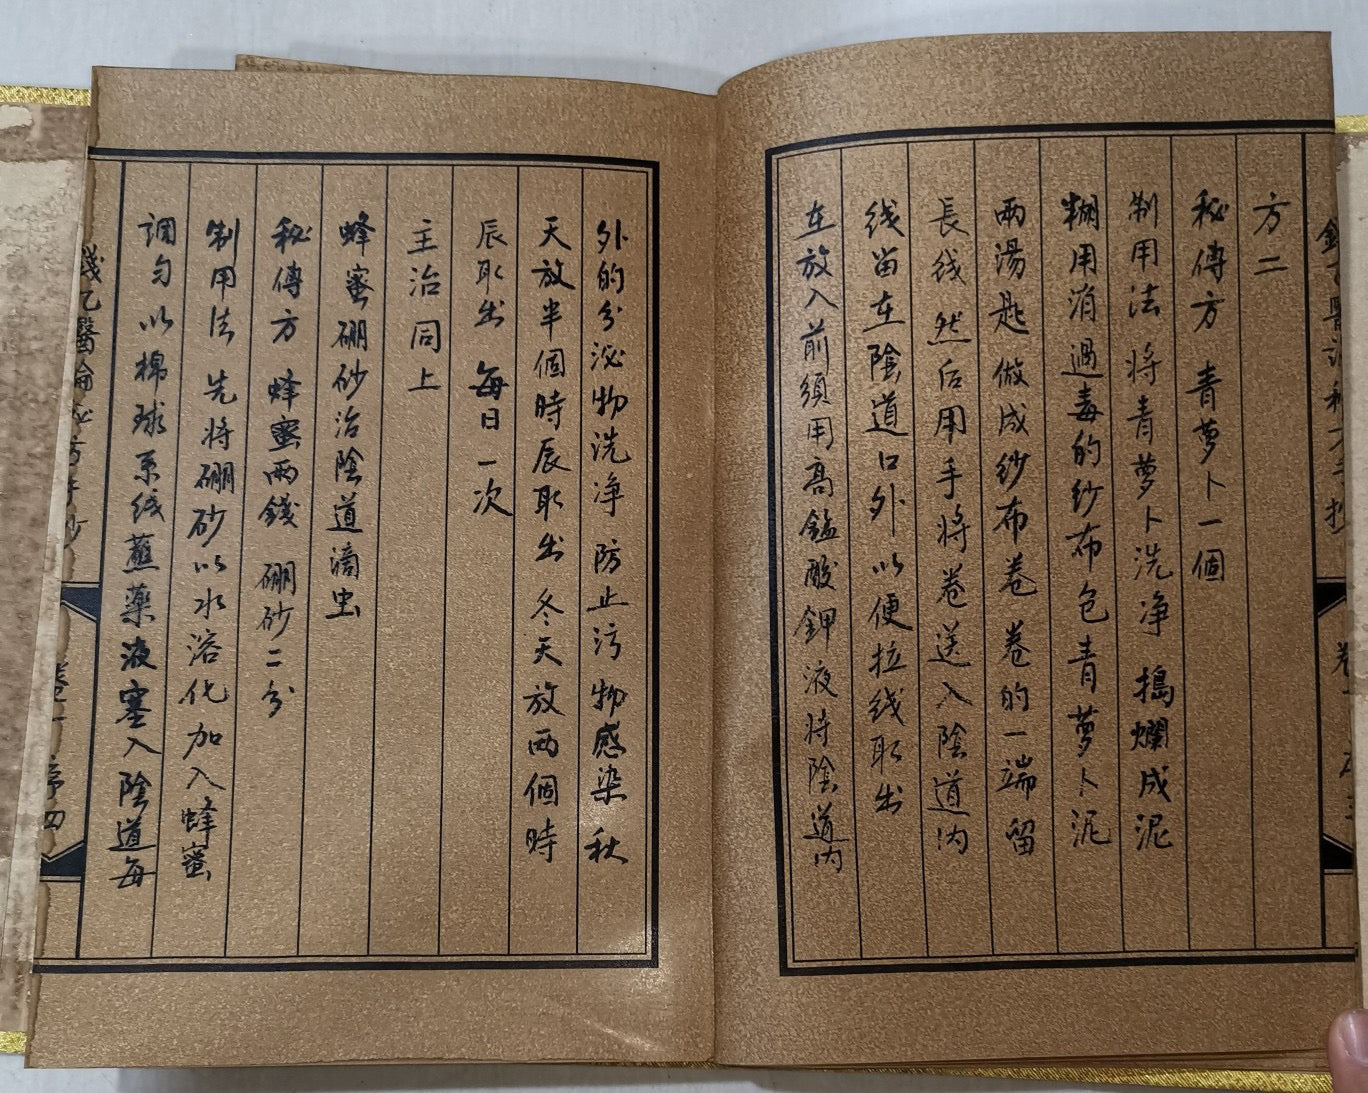 方二
秘傳方 青萝卜一個
制用法 将青萝卜洗净 搗爛成泥
糊用消過毒的纱布包青萝卜泥
兩湯匙做成纱布卷 卷的一端留
長线 然后用手将卷送入陰道内
线留在陰道口外以便拉线取出
在放入前須用高錳酸鉀液将陰道内
外的分泌物洗净 防止污物感染 秋
天放半個時辰取出 冬天放两個時
辰取出 每日一次
主治同上
蜂蜜硼砂治陰道滴虫
秘傳方 蜂蜜兩錢 硼砂二分
制用法 先将硼砂以水溶化加入蜂蜜
調匀以棉球系线蘸藥液塞入陰道每
錢乙醫論秘方手抄
卷一 序四